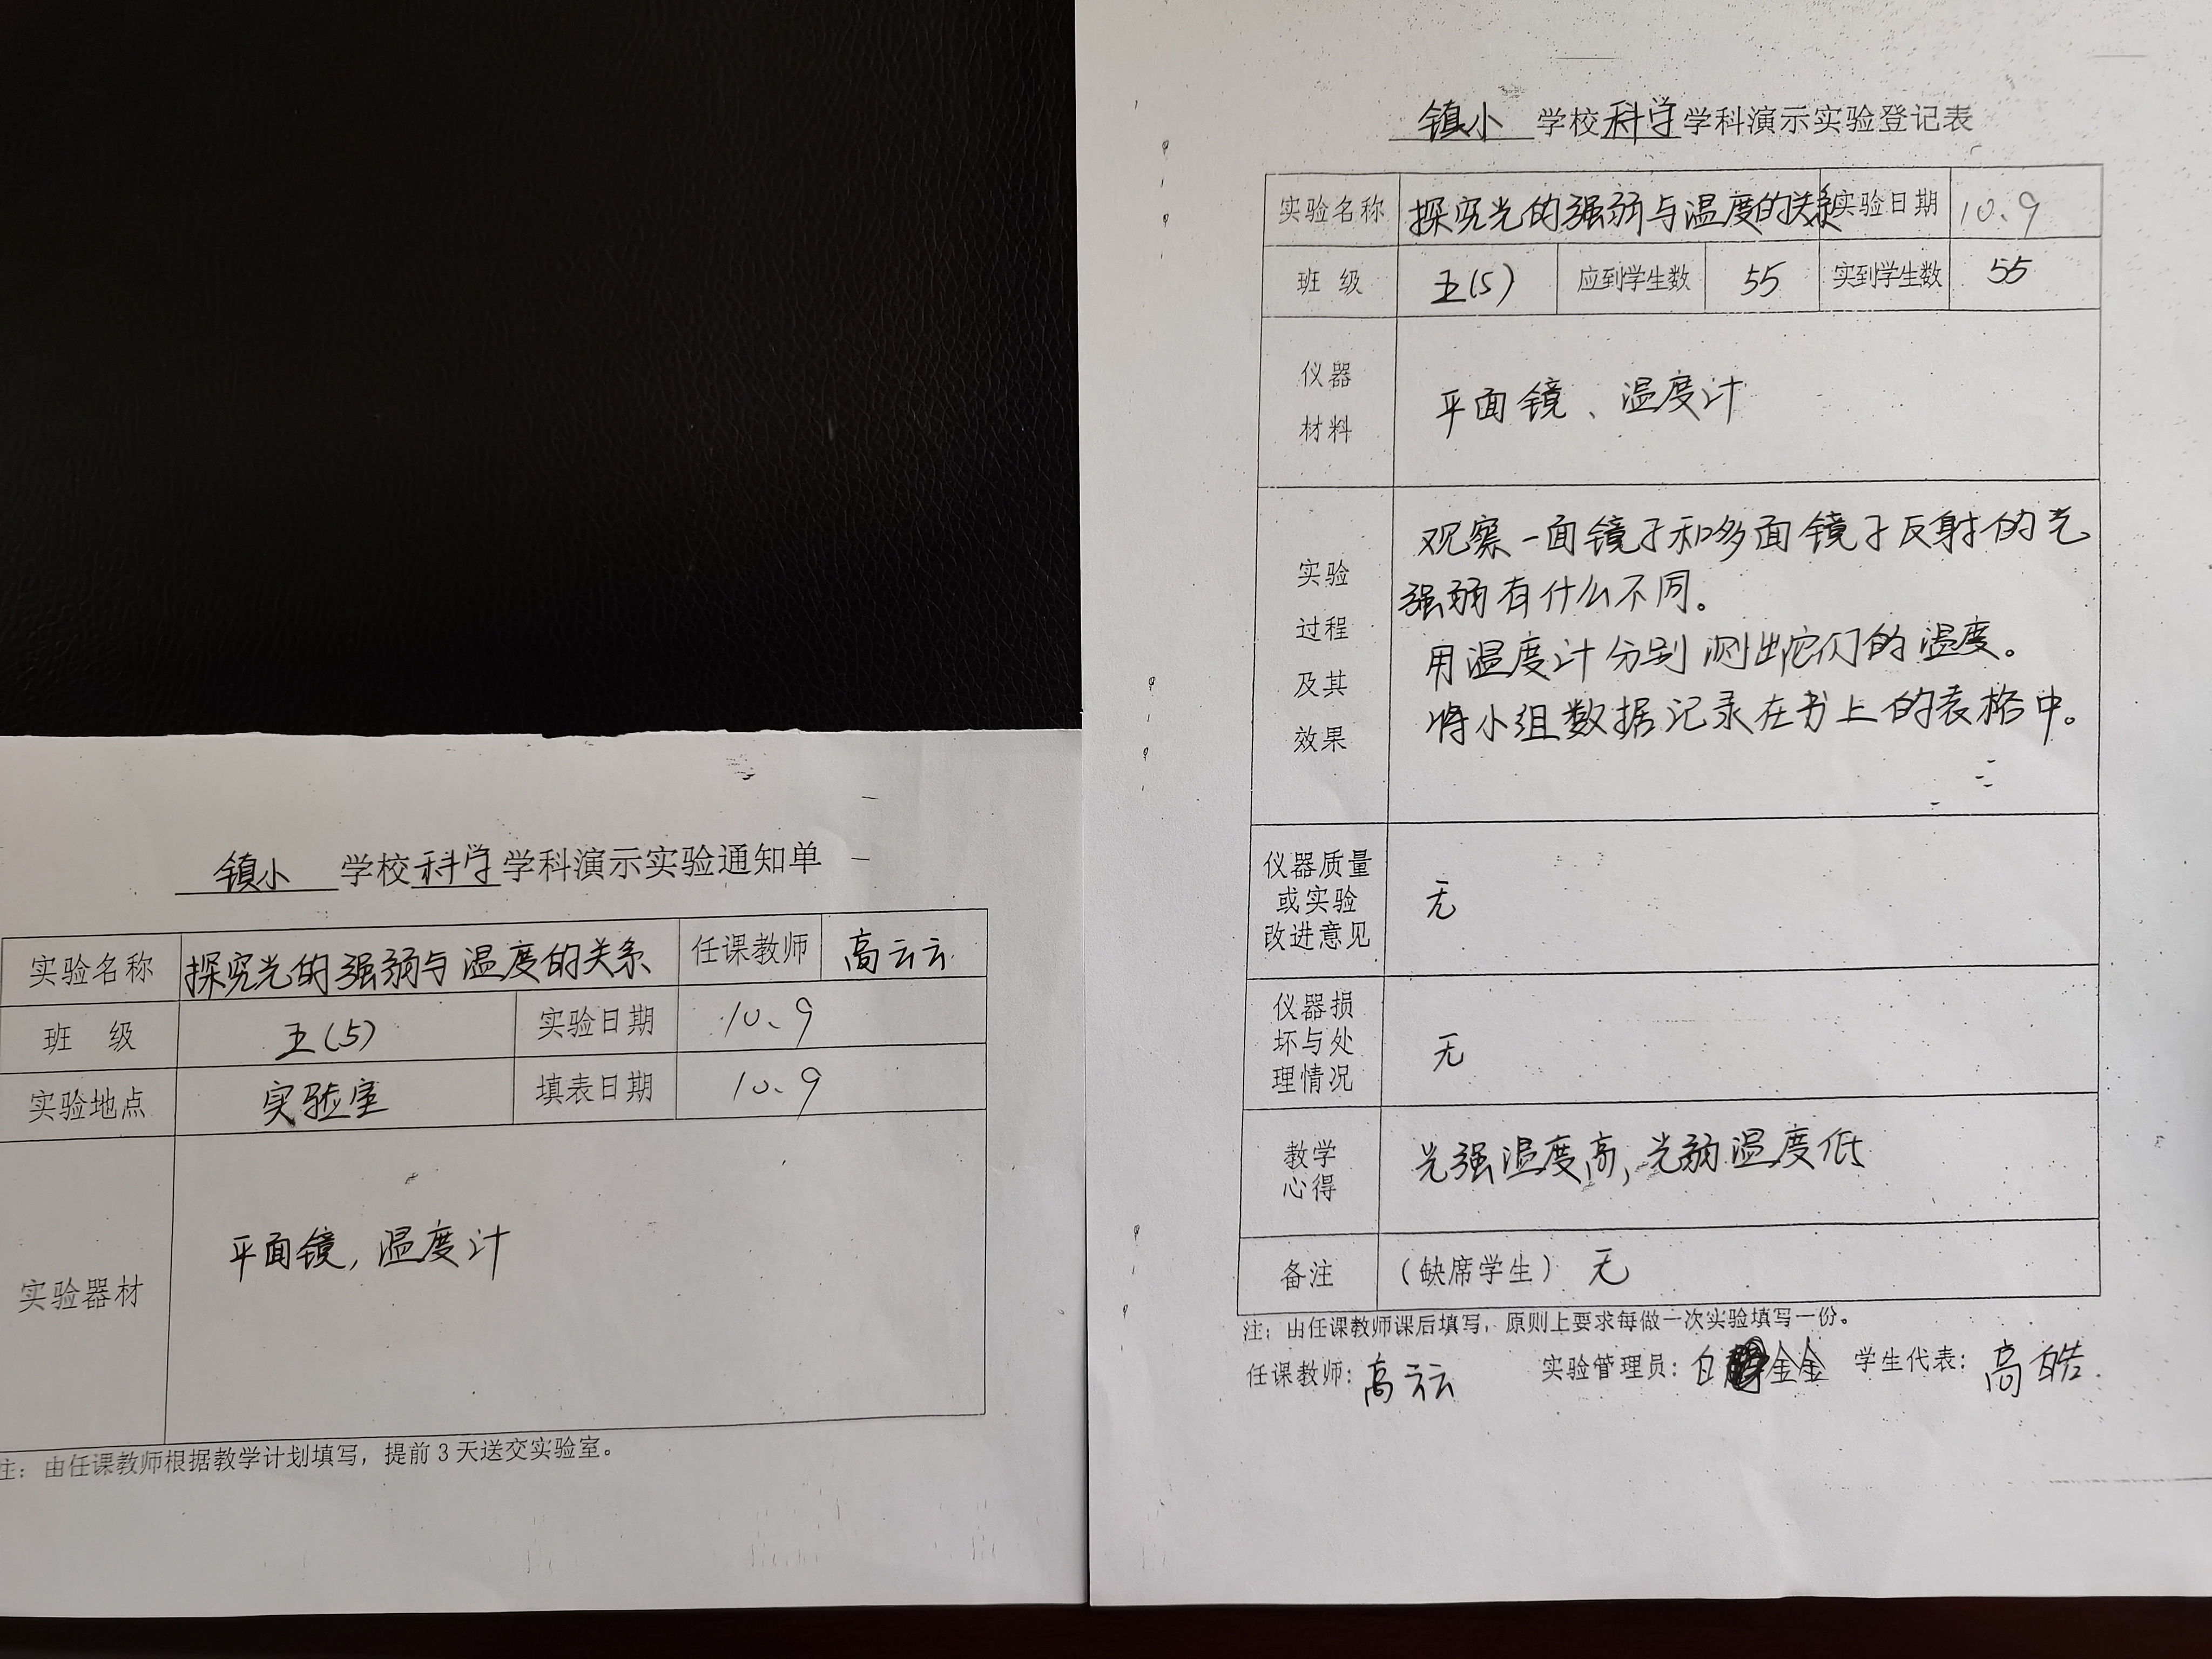 镇小 学校科学学科演示实验通知单
实验名称 探究光的强弱与温度的关系 任课教师 高云云
班 级 五(5) 实验日期 10、9
实验地点 实验室 填表日期 10、9
实验器材 平面镜,温度计
注:由任课教师根据教学计划填写,提前3天送交实验室。
镇小 学校科学学科演示实验登记表
实验名称 探究光的强弱与温度的关系 实验日期 10、9
班 级 五(5) 应到学生数 55 实到学生数 55
仪器
材料
平面镜、温度计
实验
过程
及其
效果
观察一面镜子和多面镜子反射的光
强弱有什么不同。
用温度计分别测出它们的温度。
将小组数据记录在书上的表格中。
仪器质量
或实验
改进意见
无
仪器损
坏与处
理情况
无
教学
心得
光强温度高,光弱温度低
备注 (缺席学生) 无
注:由任课教师课后填写,原则上要求每做一次实验填写一份。
任课教师:高云云 实验管理员:白金金 学生代表:高皓